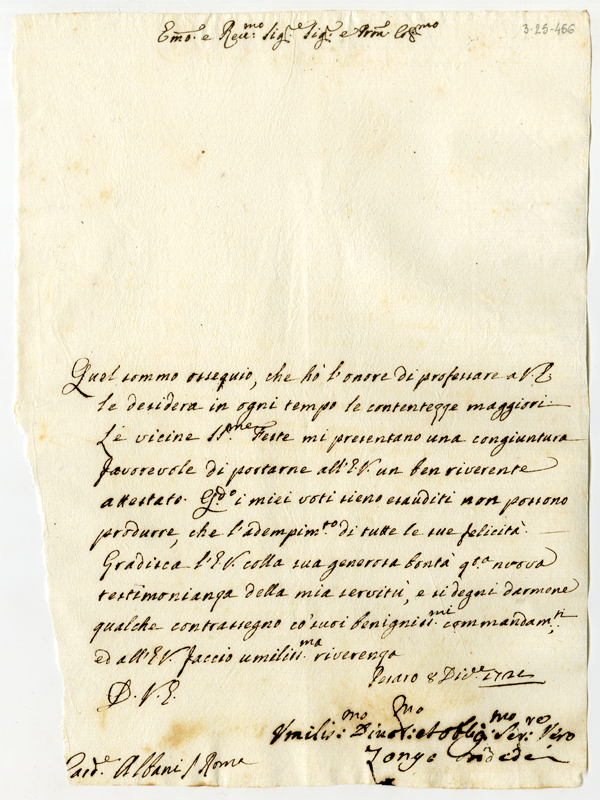 Em̃o. e Reu:mo Sig:e Sig:e e Prõn Col:mo
3-25-466
Quel sommo ossequio, che hò l'onore di professare a V.E.
le desidera in ogni tempo le contentezze maggiori
Le vicine SS.me Feste mi presentano una congiuntura
favorevole di portarne all'E.V. un ben riverente
attestato. Qdo i miei voti sieno esauditi non possono
produrre, che l'adempim:to di tutte le sue felicità.
Gradisca l'E.V. colla sua generosa bontà q.ta nuova
testimonianza della mia servitù, e si degni darmene
qualche contrassegno co' suoi benigniss:mi commandam:ti,
ed all'E.V. faccio umiliss:ma riverenza
Pesaro 8 Dic.e
D. V. E.
Umilis:mo Diuot:mo et obblig:mo Ser:re Vero
Zongo Ondedei
Card.e Albani / Roma